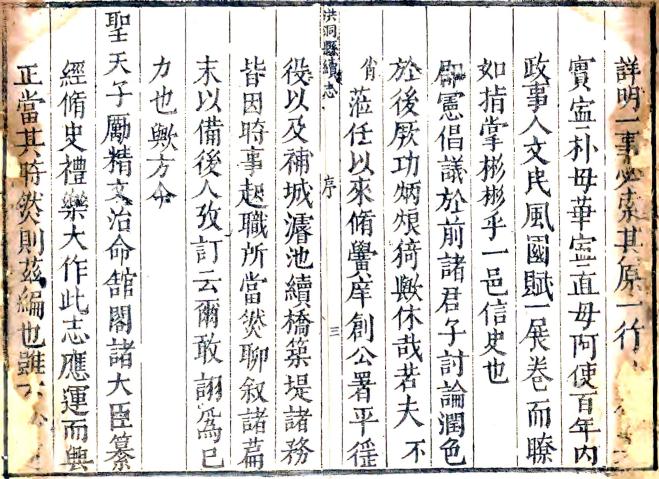 詳明一事必索其原一行
實寧朴毋華寧直毋阿使百年內
政事人文民風國賦一展卷而瞭
如指掌彬彬乎一邑信史也
郡憲倡議於前諸君子討論潤色
於後厥功炳烺猗歟休哉若夫不
肖蒞任以來脩黌庠創公署平徭
洪洞縣續志 序 三
役以及補城濬池續橋築堤諸務
皆因時事趂職所當然聊叙諸篇
末以備後人攷訂云爾敢詡爲已
力也歟方今
聖天子勵精文治命舘閣諸大臣纂
經脩史禮樂大作此志應運而興
正當其時然則茲編也雖